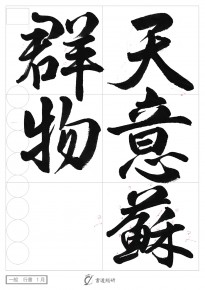 天意蘇
群物
一般 行書 1月
書道粋研